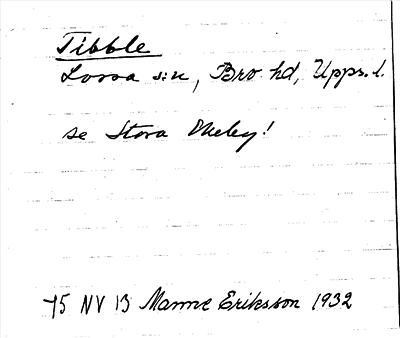 Tibble
Lossa sn, Bro hd, Upps. l.
se Stora Ekeby!
75 NV 13 Manne Eriksson 1932